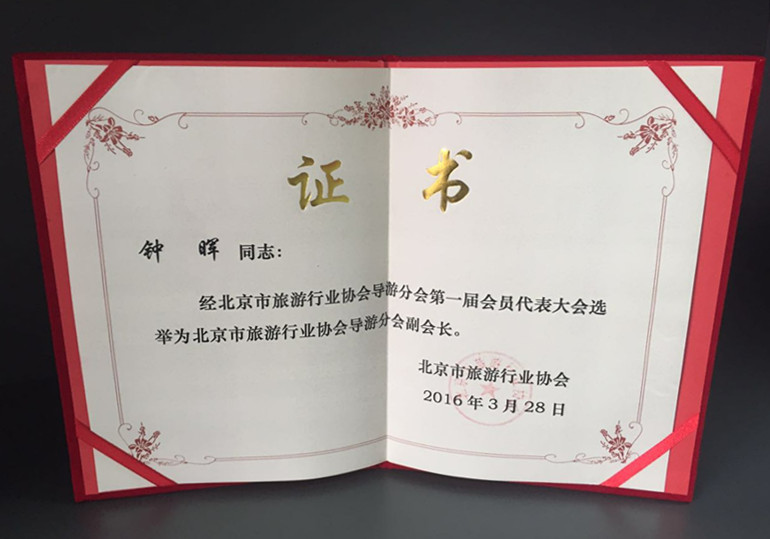 证书
钟晖 同志：
经北京市旅游行业协会导游分会第一届会员代表大会选
举为北京市旅游行业协会导游分会副会长。
北京市旅游行业协会
2016年3月28日